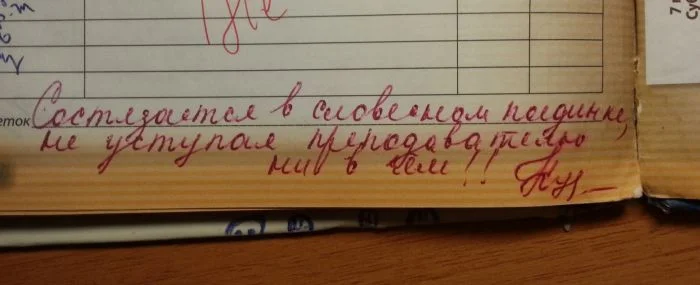 где
еток Состязается в словесном поединке,
не уступая преподавателю
ни в чем!!
7 
Су